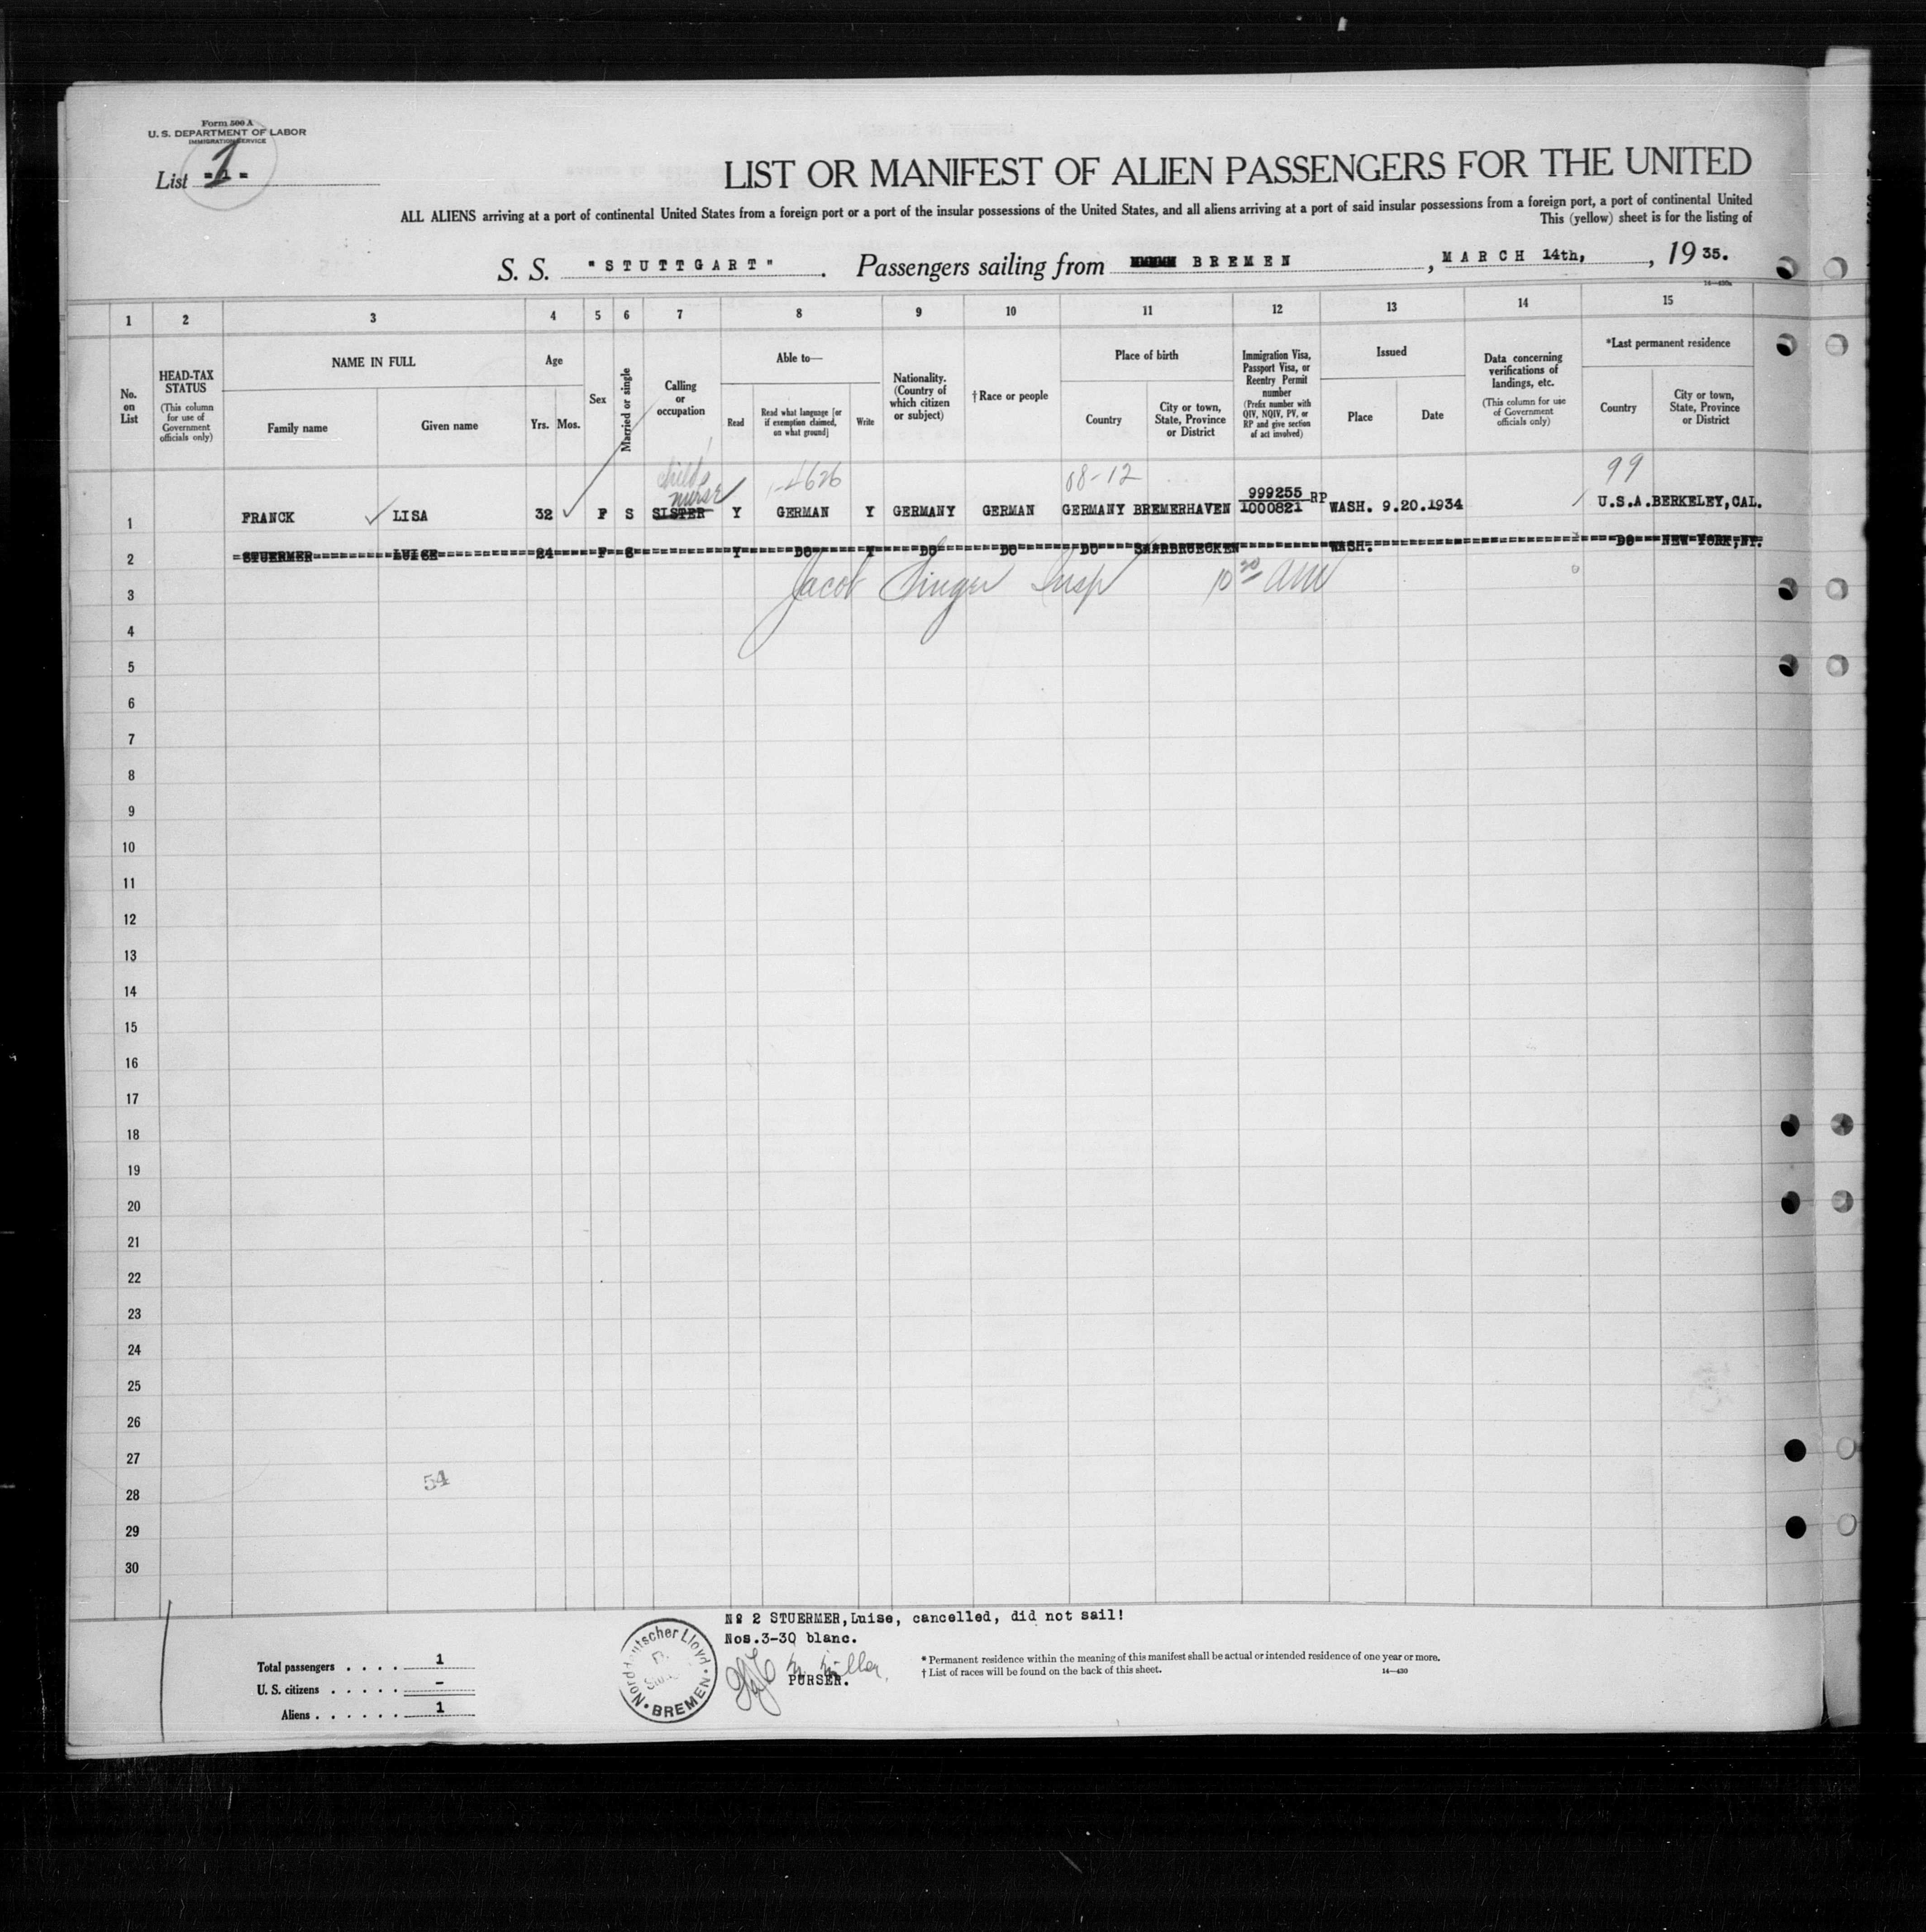 Form 500 A
U. S. DEPARTMENT OF LABOR
IMMIGRATION SERVICE
List 1
LIST OR MANIFEST OF ALIEN PASSENGERS FOR THE UNITED
ALL ALIENS arriving at a port of continental United States from a foreign port or a port of the insular possessions of the United States, and all aliens arriving at a port of said insular possessions from a foreign port, a port of continental United
This (yellow) sheet is for the listing of
S. S. "STUTTGART". Passengers sailing from BREMEN, MARCH 14th, , 19 35.
14—430a
1 2 3 4 5 6 7 8 9 10 11 12 13 14 15
No. on List
HEAD-TAX STATUS
(This column for use of Government officials only)
NAME IN FULL
Family name
Given name
Age
Yrs. Mos.
Sex
Married or single
Calling or occupation
Able to—
Read
Read what language [or if exemption claimed, on what ground]
Write
Nationality. (Country of which citizen or subject)
†Race or people
Place of birth
Country
City or town, State, Province or District
Immigration Visa, Passport Visa, or Reentry Permit number
(Prefix number with QIV, NQIV, PV, or RP and give section of act involved)
Issued
Place
Date
Data concerning verifications of landings, etc.
(This column for use of Government officials only)
*Last permanent residence
Country
City or town, State, Province or District
childs nurse 1-4626 08-12 99
1 FRANCK LISA 32 F S SISTER Y GERMAN Y GERMANY GERMAN GERMANY BREMERHAVEN 999255 RP 1000821 WASH. 9.20.1934 U.S.A. BERKELEY,CAL.
2 STUERMER LUISE 24 F S Y DO Y DO DO DO SAARBRUECKEN WASH. DO NEW YORK,NY.
Jacob Singer Insp 10 20 AM
3
4
5
6
7
8
9
10
11
12
13
14
15
16
17
18
19
20
21
22
23
24
25
26
27
54
28
29
30
No 2 STUERMER,Luise, cancelled, did not sail!
Nos.3-30 blanc.
Total passengers . . . . 1
U. S. citizens . . . . . -
Aliens . . . . . . 1
Norddeutscher Lloyd
BREMEN
Müller
PURSER.
* Permanent residence within the meaning of this manifest shall be actual or intended residence of one year or more.
† List of races will be found on the back of this sheet.
14—430